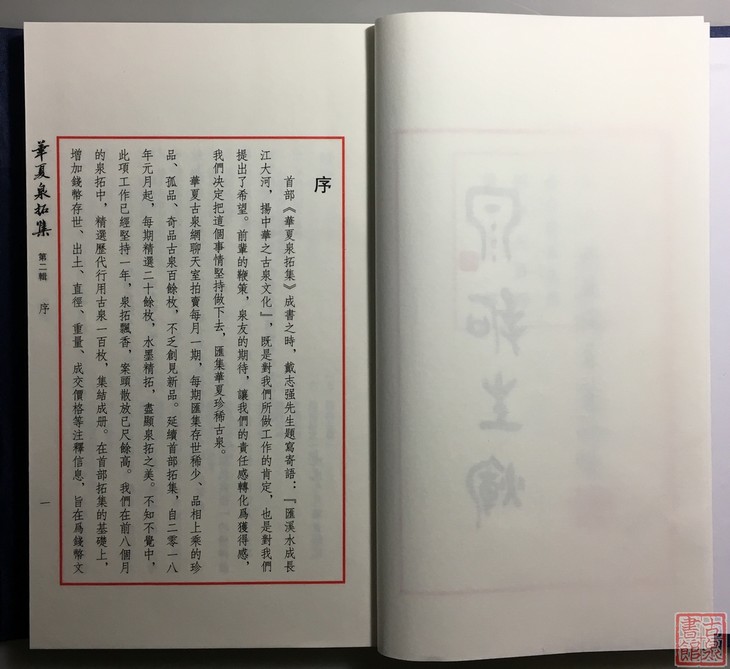 序
首部《華夏泉拓集》成書之時，戴志强先生題寫寄語：『匯溪水成長
江大河，揚中華之古泉文化』，既是對我們所做工作的肯定，也是對我們
提出了希望。前輩的鞭策，泉友的期待，讓我們的責任感轉化爲獲得感，
我們决定把這個事情堅持做下去，匯集華夏珍稀古泉。
華夏古泉網聊天室拍賣每月一期，每期匯集存世稀少、品相上乘的珍
品、孤品、奇品古泉百餘枚，不乏創見新品。延續首部拓集，自二零一八
年元月起，每期精選二十餘枚，水墨精拓，盡顯泉拓之美。不知不覺中，
此項工作已經堅持一年，泉拓飄香，案頭散放已尺餘高。我們在前八個月
的泉拓中，精選歷代行用古泉一百枚，集結成册。在首部拓集的基礎上，
增加錢幣存世、出土、直徑、重量、成交價格等注釋信息，旨在爲錢幣文
華夏泉拓集
第二輯
序
一
泉拓生輝
古泉書館